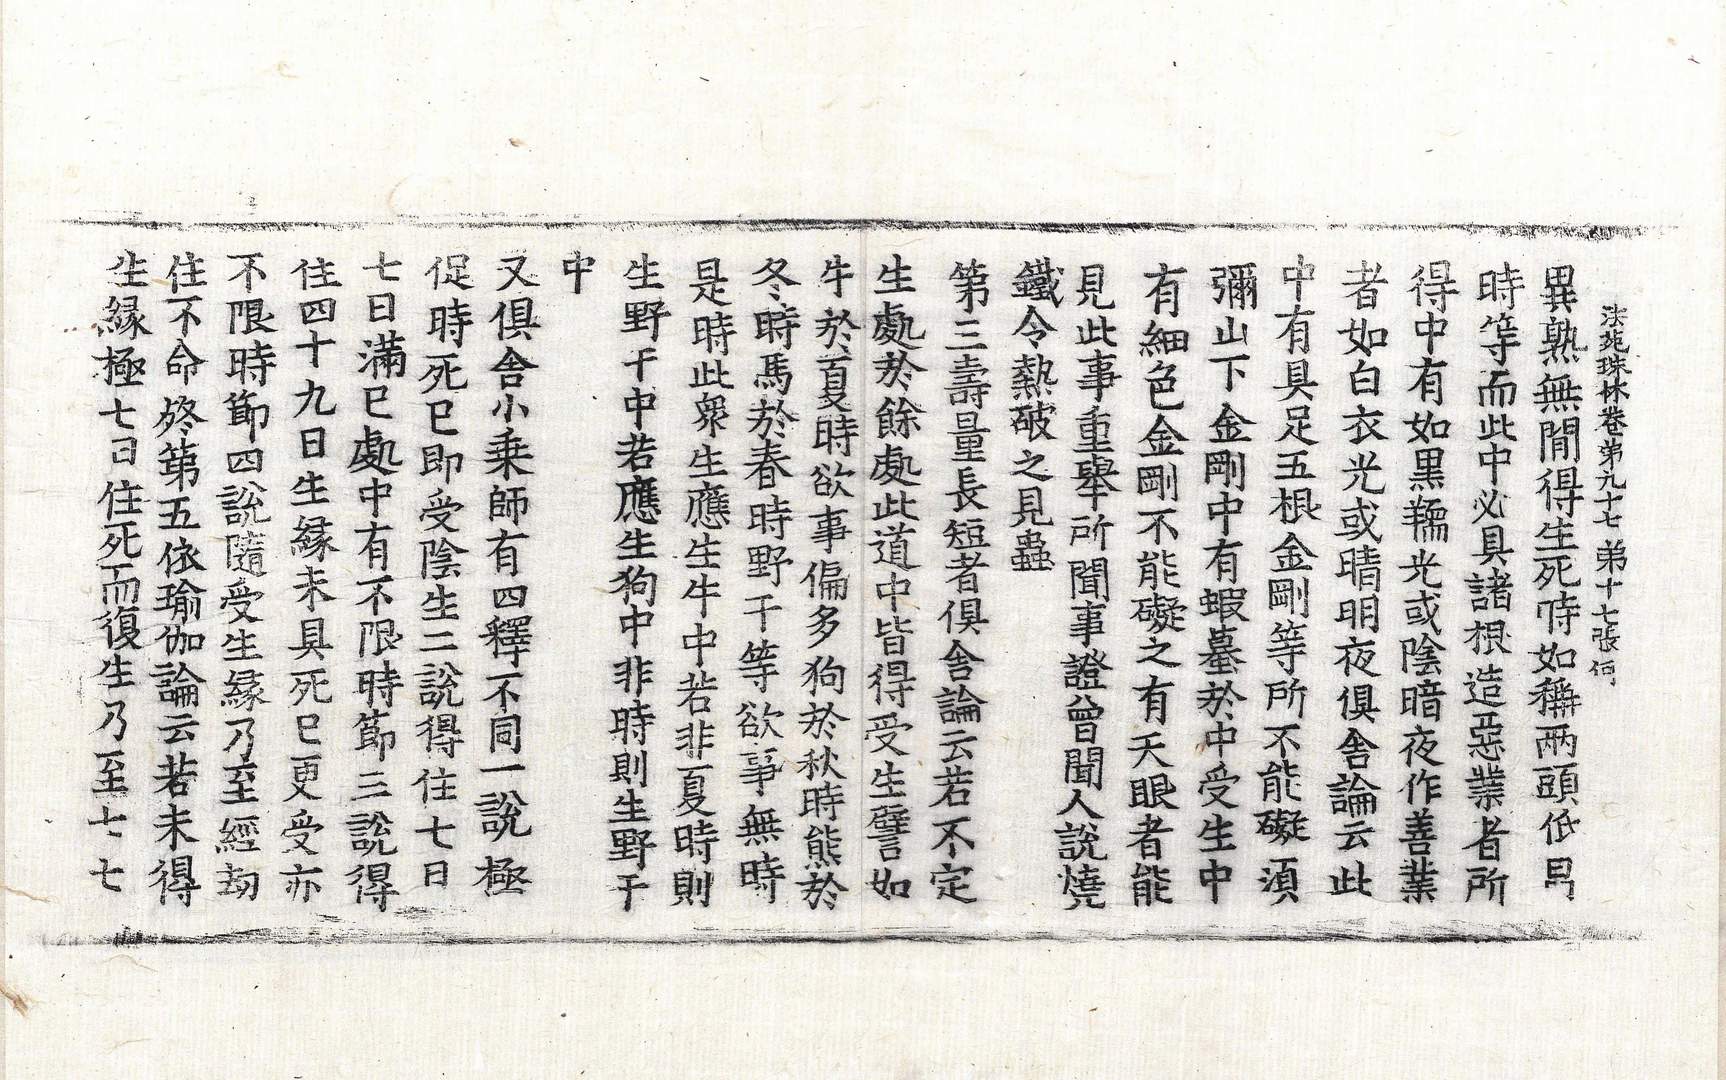 法苑珠林卷第九十七 第十七張 何
異熟無閒得生死時如稱兩頭低昂
時等而此中必具諸根造惡業者所
得中有如黑羺光或陰暗夜作善業
者如白衣光或晴明夜俱舍論云此
中有具足五根金剛等所不能礙須
彌山下金剛中有蝦蟇於中受生中
有細色金剛不能礙之有天眼者能
見此事重舉所聞事證曾聞人說燒
鐵令熱破之見蟲
第三壽量長短者俱舍論云若不定
生處於餘處此道中皆得受生譬如
牛於夏時欲事偏多狗於秋時熊於
冬時馬於春時野干等欲事無時
是時此衆生應生牛中若非夏時則
生野干中若應生狗中非時則生野干
中
又俱舍小乘師有四釋不同一說極
促時死已即受陰生二說得住七日
七日滿已處中有不限時節三說得
住四十九日生緣未具死已更受亦
不限時節四說隨受生緣乃至經劫
住不命終第五依瑜伽論云若未得
生緣極七日住死而復生乃至七七